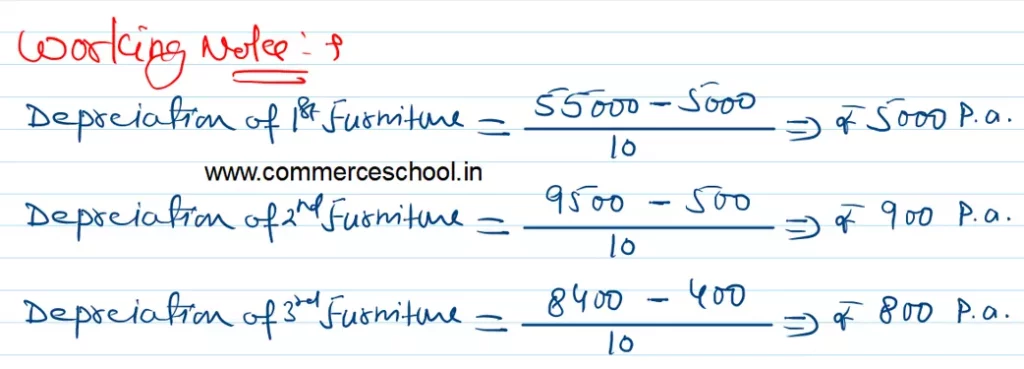 Working Note :-
Depreciation of 1st Furniture = 55000 - 5000 / 10 ⇒ ₹ 5000 P.a.
www.commerceschool.in
Depreciation of 2nd Furniture = 9500 - 500 / 10 ⇒ ₹ 900 P.a.
Depreciation of 3rd Furniture = 8400 - 400 / 10 ⇒ ₹ 800 P.a.